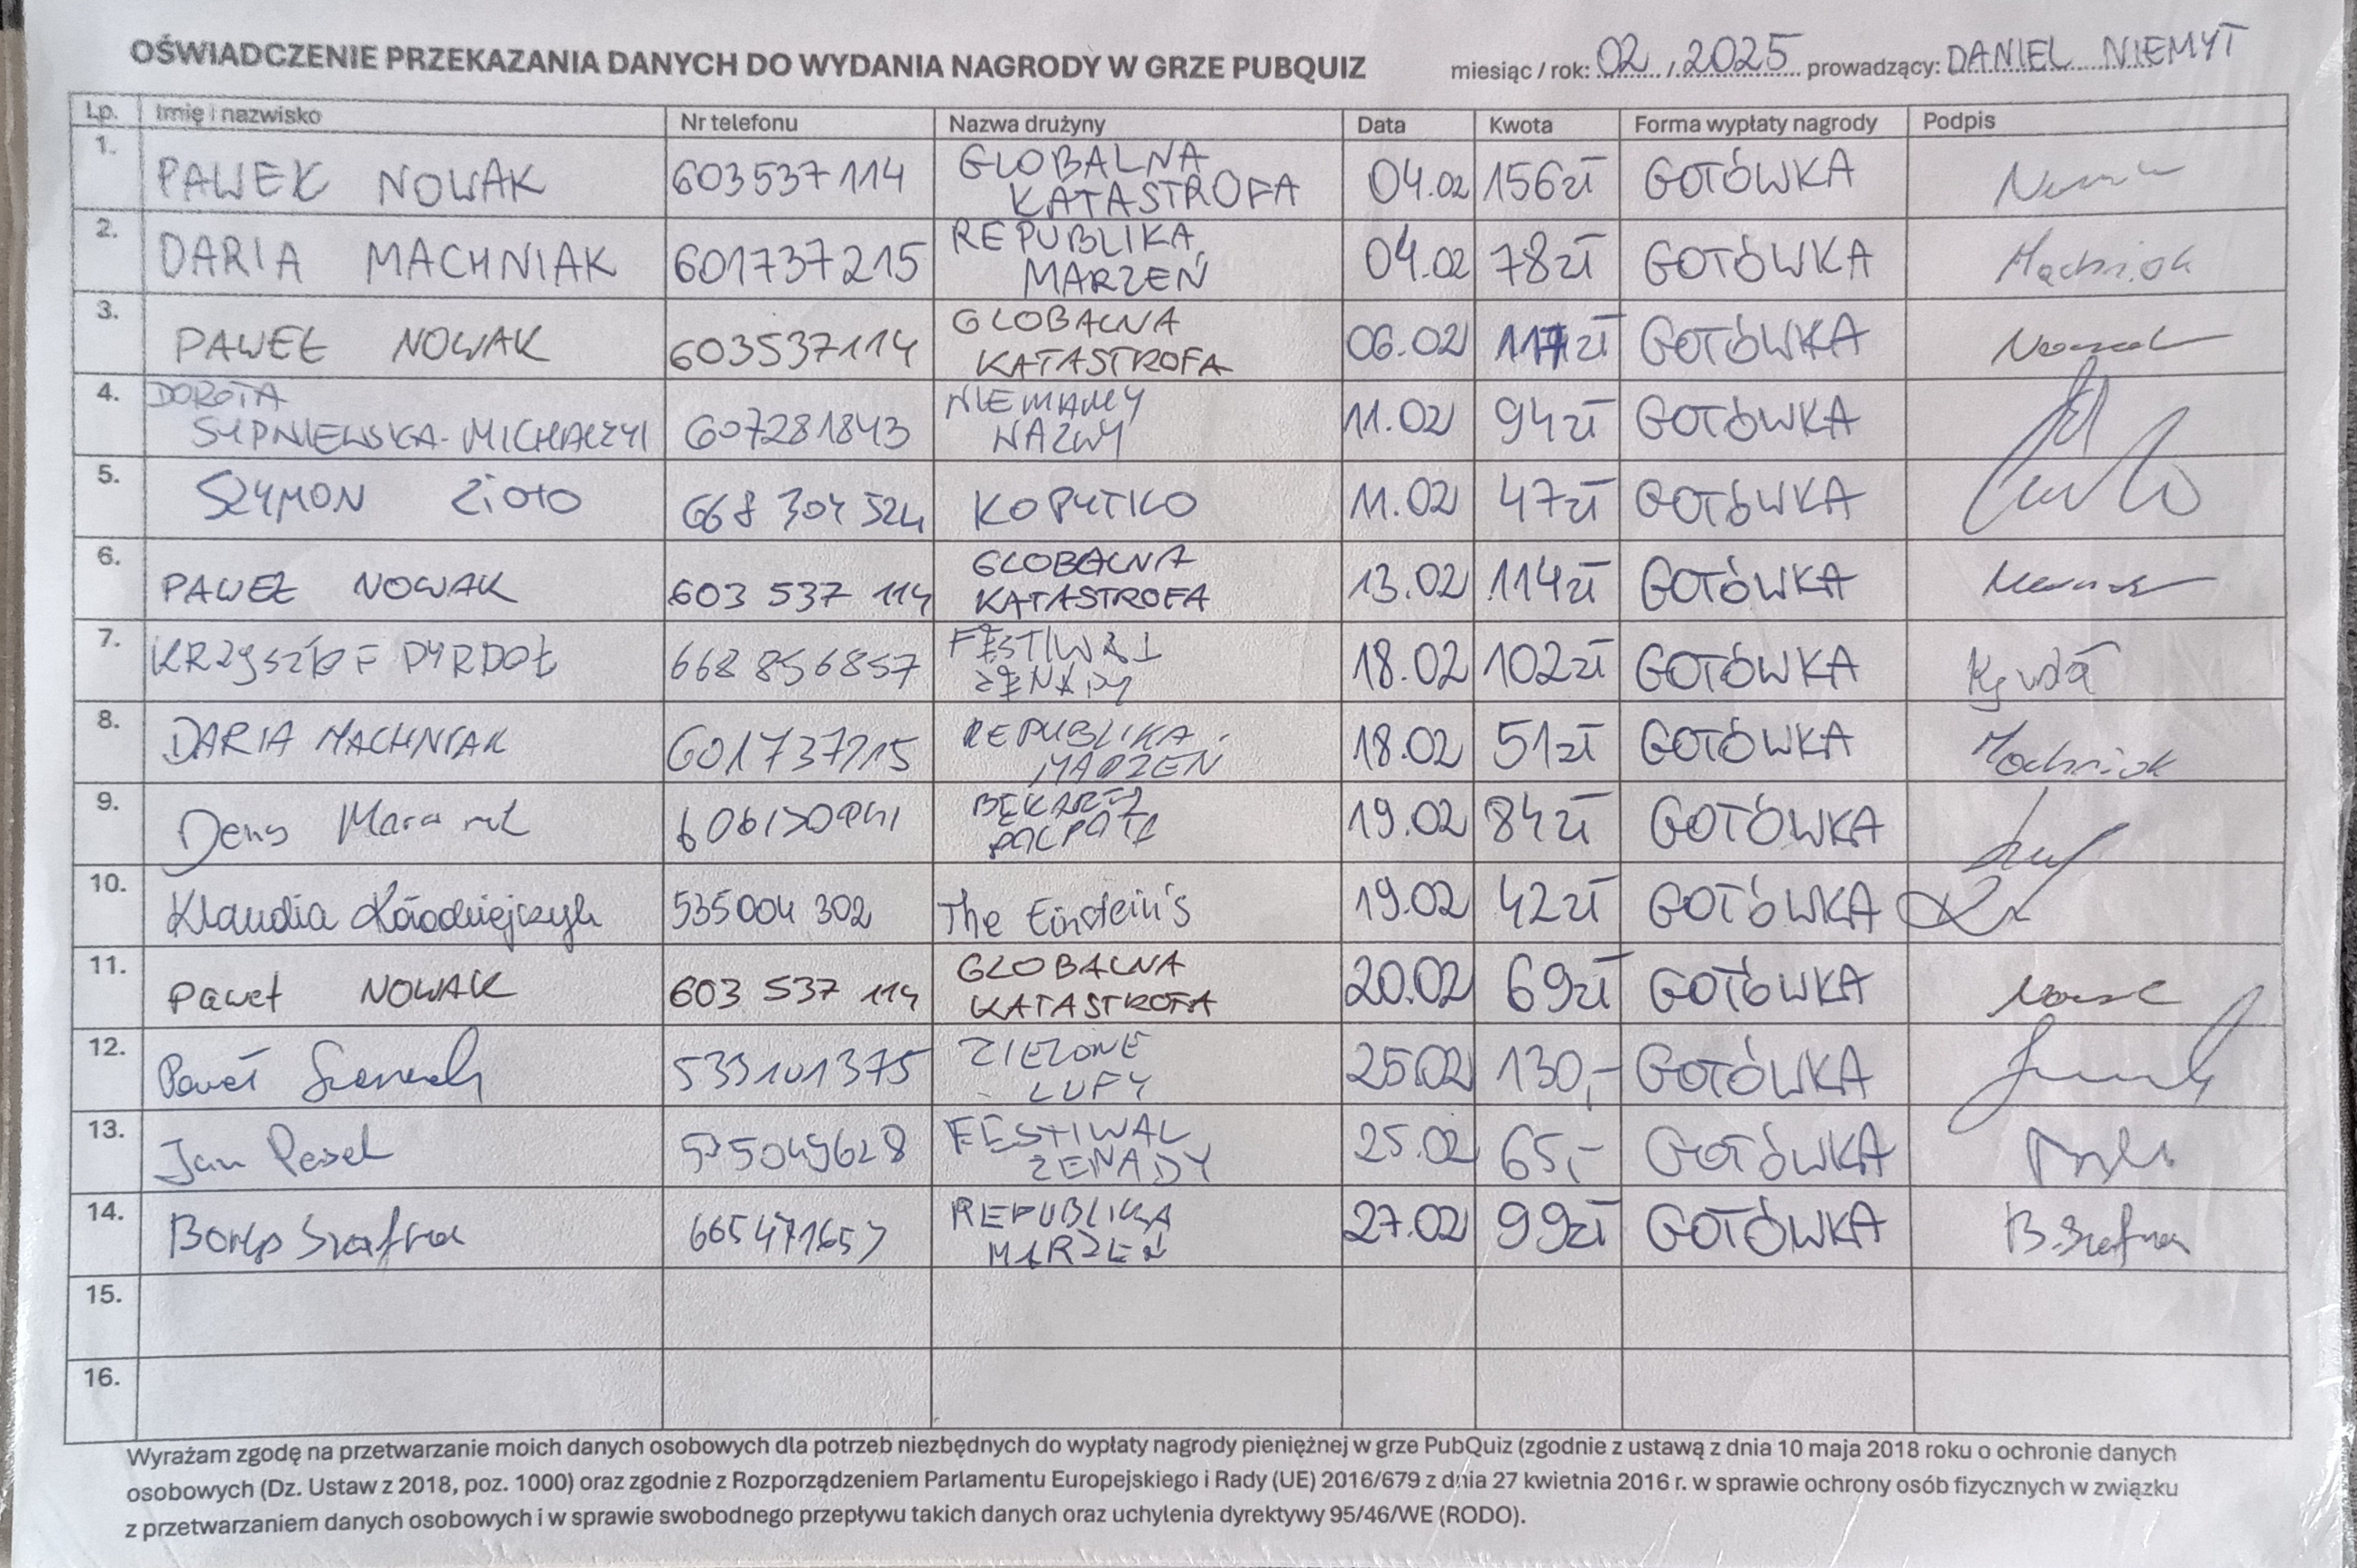 OŚWIADCZENIE PRZEKAZANIA DANYCH DO WYDANIA NAGRODY W GRZE PUBQUIZ miesiąc / rok: 02 / 2025 prowadzący: DANIEL NIEMYT
Lp. Imię i nazwisko Nr telefonu Nazwa drużyny Data Kwota Forma wypłaty nagrody Podpis
1. PAWEŁ NOWAK 603537114 GLOBALNA KATASTROFA 04.02 156zł GOTÓWKA
2. DARIA MACHNIAK 601737215 REPUBLIKA MARZEŃ 04.02 78zł GOTÓWKA Machniak
3. PAWEŁ NOWAK 603537114 GLOBALNA KATASTROFA 06.02 117zł GOTÓWKA Nowak
4. DOROTA SYPNIEWSKA-MICHALCZYK 607281843 NIEMAMY NAZWY 11.02 94zł GOTÓWKA
5. SZYMON Zioło 668 304 524 KOPYTKO 11.02 47zł GOTÓWKA
6. PAWEŁ NOWAK 603 537 114 GLOBALNA KATASTROFA 13.02 114zł GOTÓWKA
7. KRZYSZTOF PYRDOŁ 668 856857 FESTIWAL ŻENADY 18.02 102zł GOTÓWKA
8. DARIA MACHNIAK 601737215 REPUBLIKA MARZEŃ 18.02 51zł GOTÓWKA Machniak
9. 19.02 84zł GOTÓWKA
10. Klaudia Kołodziejczyk 535004 302 The Einstein's 19.02 42zł GOTÓWKA
11. Paweł NOWAK 603 537 114 GLOBALNA KATASTROFA 20.02 69zł GOTÓWKA
12. Paweł 533101375 ZIELONE LUFY 25.02 130,- GOTÓWKA
13. Jan FESTIWAL ŻENADY 25.02 65,- GOTÓWKA
14. REPUBLIKA MARZEŃ 27.02 99zł GOTÓWKA
15.
16.
Wyrażam zgodę na przetwarzanie moich danych osobowych dla potrzeb niezbędnych do wypłaty nagrody pieniężnej w grze PubQuiz (zgodnie z ustawą z dnia 10 maja 2018 roku o ochronie danych
osobowych (Dz. Ustaw z 2018, poz. 1000) oraz zgodnie z Rozporządzeniem Parlamentu Europejskiego i Rady (UE) 2016/679 z dnia 27 kwietnia 2016 r. w sprawie ochrony osób fizycznych w związku
z przetwarzaniem danych osobowych i w sprawie swobodnego przepływu takich danych oraz uchylenia dyrektywy 95/46/WE (RODO).